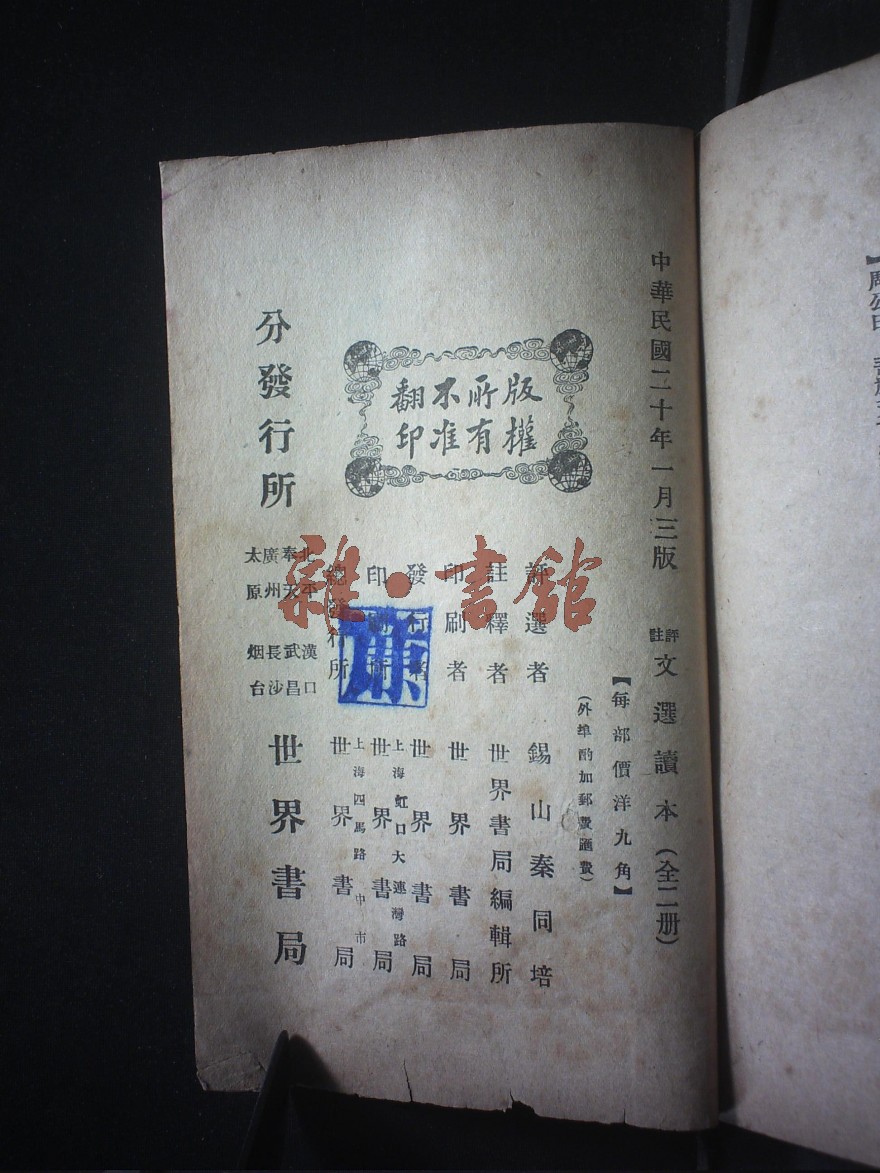 中華民國二十年一月三版
評註文選讀本（全二册）
【每部價洋九角】
（外埠酌加郵費匯費）
評選者 錫山秦同培
註釋者 世界書局編輯所
印刷者 世界書局
發行者 世界書局
印刷所 上海虹口大連灣路 世界書局
總發行所 上海四馬路中市 世界書局
版權所有
不准翻印
分發行所 北平 奉天 廣州 太原 漢口 武昌 長沙 烟台 世界書局
雜·書館
康